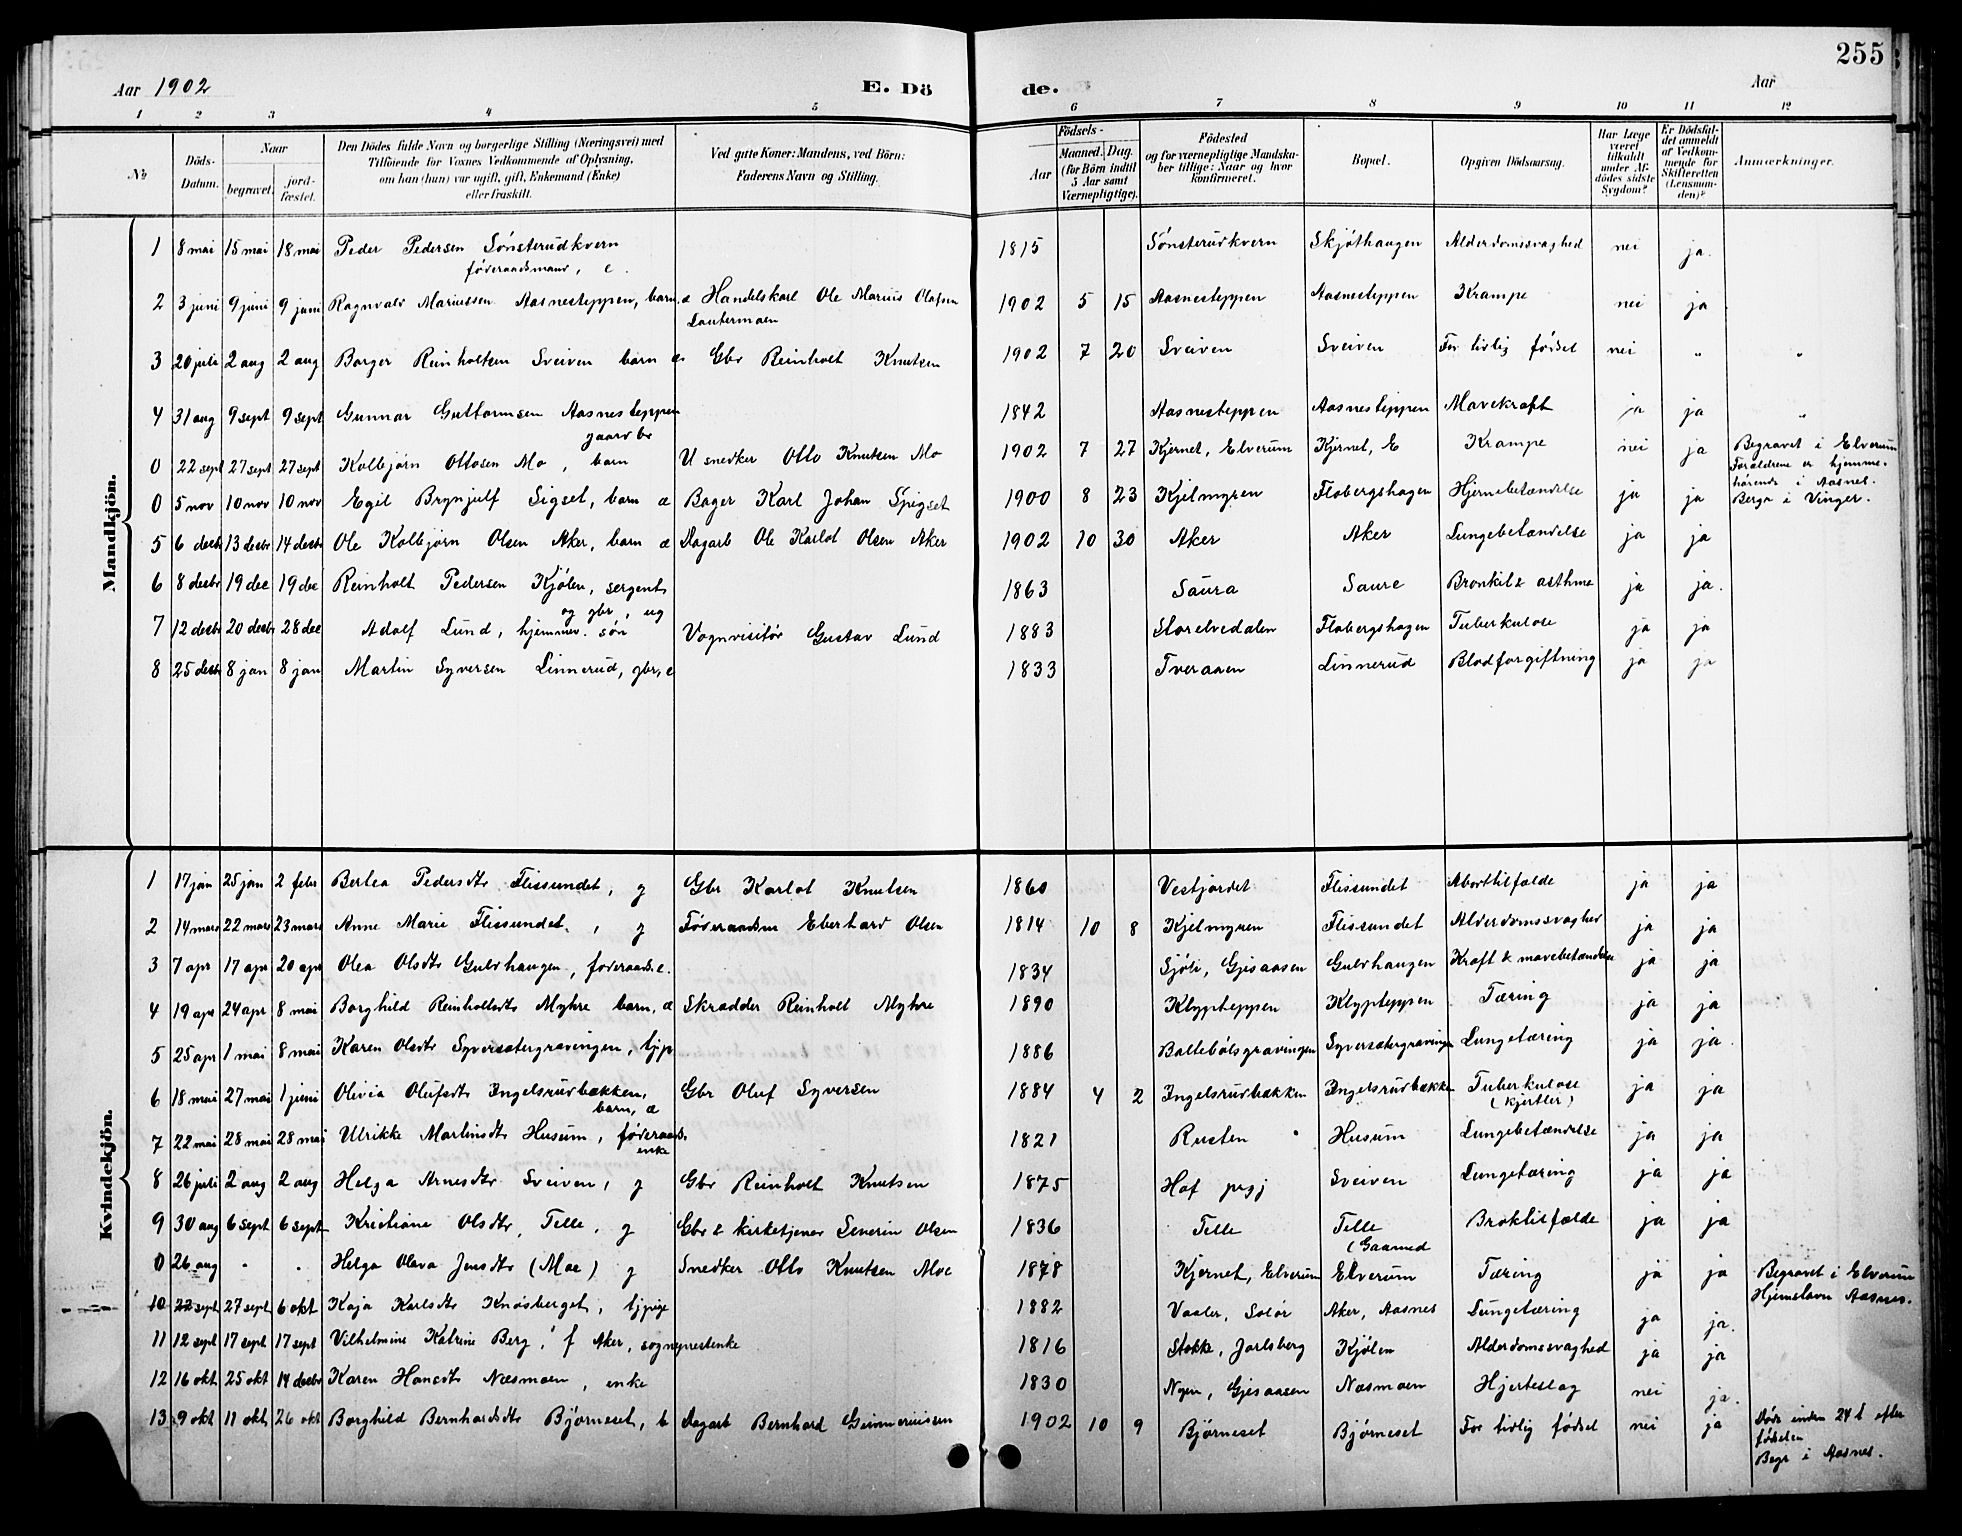 Aar 1902 E. Dö de. Aar 255
1 2 3 4 5 6 7 8 9 10 11 12
№ Döds-Datum. Naar begravet. jordfæstet. Den Dödes fulde Navn og borgerlige Stilling (Næringsvei) med Tilföiende for Voxnes Vedkommende af Oplysning, om han (hun) var ugift, gift, Enkemand (Enke) eller fraskilt. Ved gifte Koner: Mandens, ved Börn: Faderens Navn og Stilling. Födsels- Aar Maaned. Dag. (for Börn indtil 5 Aar samt Værnepligtige). Födested og for værnepligtige Mandskaber tillige: Naar og hvor konfirmeret. Bopæl. Opgiven Dödsaarsag. Har Læge været tilkaldt under Afdödes sidste Sygdom? Er Dödsfaldet anmeldt af Vedkommende for Skifteretten (Lensmanden)? Anmærkninger.
Mandkjön.
1 8 mai 15 mai 18 mai Peder Pedersen Sönsterudkvern 1815 Sönsterudkvern Skjöthaugen Alderdomssvaghed nei ja.
föderaadsmand, e.
2 3 juni 9 juni 9 juni Ragnvald Mariussen Aasnesteppen, barn. æ Handelskarl Ole Marius Olafsen 1902 5 15 Aasnesteppen Aasnesteppen Krampe nei ja
Lautermoen
3 20 juli 2 aug 2 aug Borger Reinholtsen Sveiven barn æ Gbr Reinholt Knutsen 1902 7 20 Sveiven Sveiven For tidlig födsel nei " "
4 31 aug 9 sept 9 sept Gunnar Guttormsen Aasnesteppen 1842 Aasnesteppen Aasnesteppen Mavekræft ja ja "
gaardbr
0 22 sept 27 sept 27 sept Kolbjörn Ottosen Mo, barn U snedker Otto Knutsen Mo 1902 7 27 Kjernet, Elverum Kjernet, E Krampe nei ja Begravet i Elverum
Forældrene er hjemme-
hörende i Aasnes.
0 5 nov 10 nov 10 nov Egil Brynjulf Sigset, barn æ Bager Karl Johan Spigset 1900 8 23 Kjelmyren Flobergshagen Hjernebetændelse ja ja Bergr i Vinger.
5 6 desbr 13 desbr 14 desbr Ole Kolbjörn Olsen Aker, barn æ Dagarb Ole Karlot Olsen Aker 1902 10 30 Aker Aker Lungebetændelse ja ja
6 8 desbr 19 dec 19 dec Reinholt Pedersen Kjölen, sergent 1863 Saura Saure Bronkit & asthma ja ja.
og gbr, ug
7 12 desbr 20 desbr 28 dec Adolf Lund, hjemmev. sön Vognvisitör Gustav Lund 1883 Storelvedalen Flobergshagen Tuberkulose ja ja
8 25 desbr 8 jan 8 jan Martin Syversen Linnerud, gbr, e 1833 Tveraaen Linnerud Blodforgiftning ja ja
Kvindekjön.
1 17 jan 25 jan 2 febr Bertea Pedersdtr Flissundet, g Gbr Karlot Knutsen 1860 Vestjordet Flissundet Aborttilfælde ja ja
2 14 mars 22 mars 23 mars Anne Marie Flissundet, g Föderaadsm Eberhard Olsen 1814 10 8 Kjelmyren Flissundet Alderdomssvaghed ja ja
3 7 apr 17 apr 20 apr Olea Olsdtr Gulvhaugen, föderaads e. 1834 Sjöli, Gjesaasen Gulvhaugen Kræft & mavebetændelse ja ja
4 19 apr 24 apr 8 mai Borghild Reinholtsdtr Myhre barn, æ Skrædder Reinholt Myhre 1890 Klypteppen Klypteppen Tæring ja ja
5 25 apr 1 mai 8 mai Karen Olsdtr Syversætergravingen, tjp 1886 Baltebölsgravingen Syversætergravingen Lungetæring ja ja.
6 18 mai 27 mai 1 juni Olivia Olufsdtr Ingelsrudbækken, Gbr Oluf Syversen 1884 4 2 Ingelsrudbækken Ingelsrudbækken Tuberkulose ja ja
barn, æ (kjertler)
7 22 mai 28 mai 28 mai Ulrikke Martinsdtr Husum, föderaads. 1821 Rusten Husum Lungebetændelse ja ja
enke
8 26 juli 2 aug 2 aug Helga Arnesdtr Sveiven, g Gbr Reinholt Knutsen 1875 Hof prgj Sveiven Lungetæring ja ja
9 30 aug 6 sept 6 sept Kristiane Olsdtr, Telle, g Gbr & kirketjener Severin Olsen 1836 Telle Telle Broktilfælde ja ja
(Gaarned
0 26 aug " " Helga Olava Jensdtr (Moe) g Snedker Otto Knutsen Moe 1878 Kjernet, Elverum Elverum Tæring ja ja Begravet i Elverum
Hjemstavn Aasnes.
10 22 sept 27 sept 6 okt Kaja Karlsdtr Knösberget, tjpige 1882 Vaaler, Solör Aker, Aasnes Lungetæring ja ja.
11 12 sept 17 sept 17 sept Vilhelmine Katrine Berg, f Aker, sogneprestenke 1816 Stokke, Jarlsberg Kjölen Alderdomssvaghed ja ja
12 16 okt 25 okt 14 desbr Karen Hansdtr Næsmoen, enke 1830 Nyen, Gjesaasen Næsmoen Hjerteslag nei ja.
13 9 okt 11 okt 26 okt Borghild Bernhardsdtr Björneset, b Dagarb Bernhard Gunneriussen 1902 10 9 Björneset Björneset For tidlig födsel nei ja Döde inden 24 t efter
födselen
Begr i Aasnes.